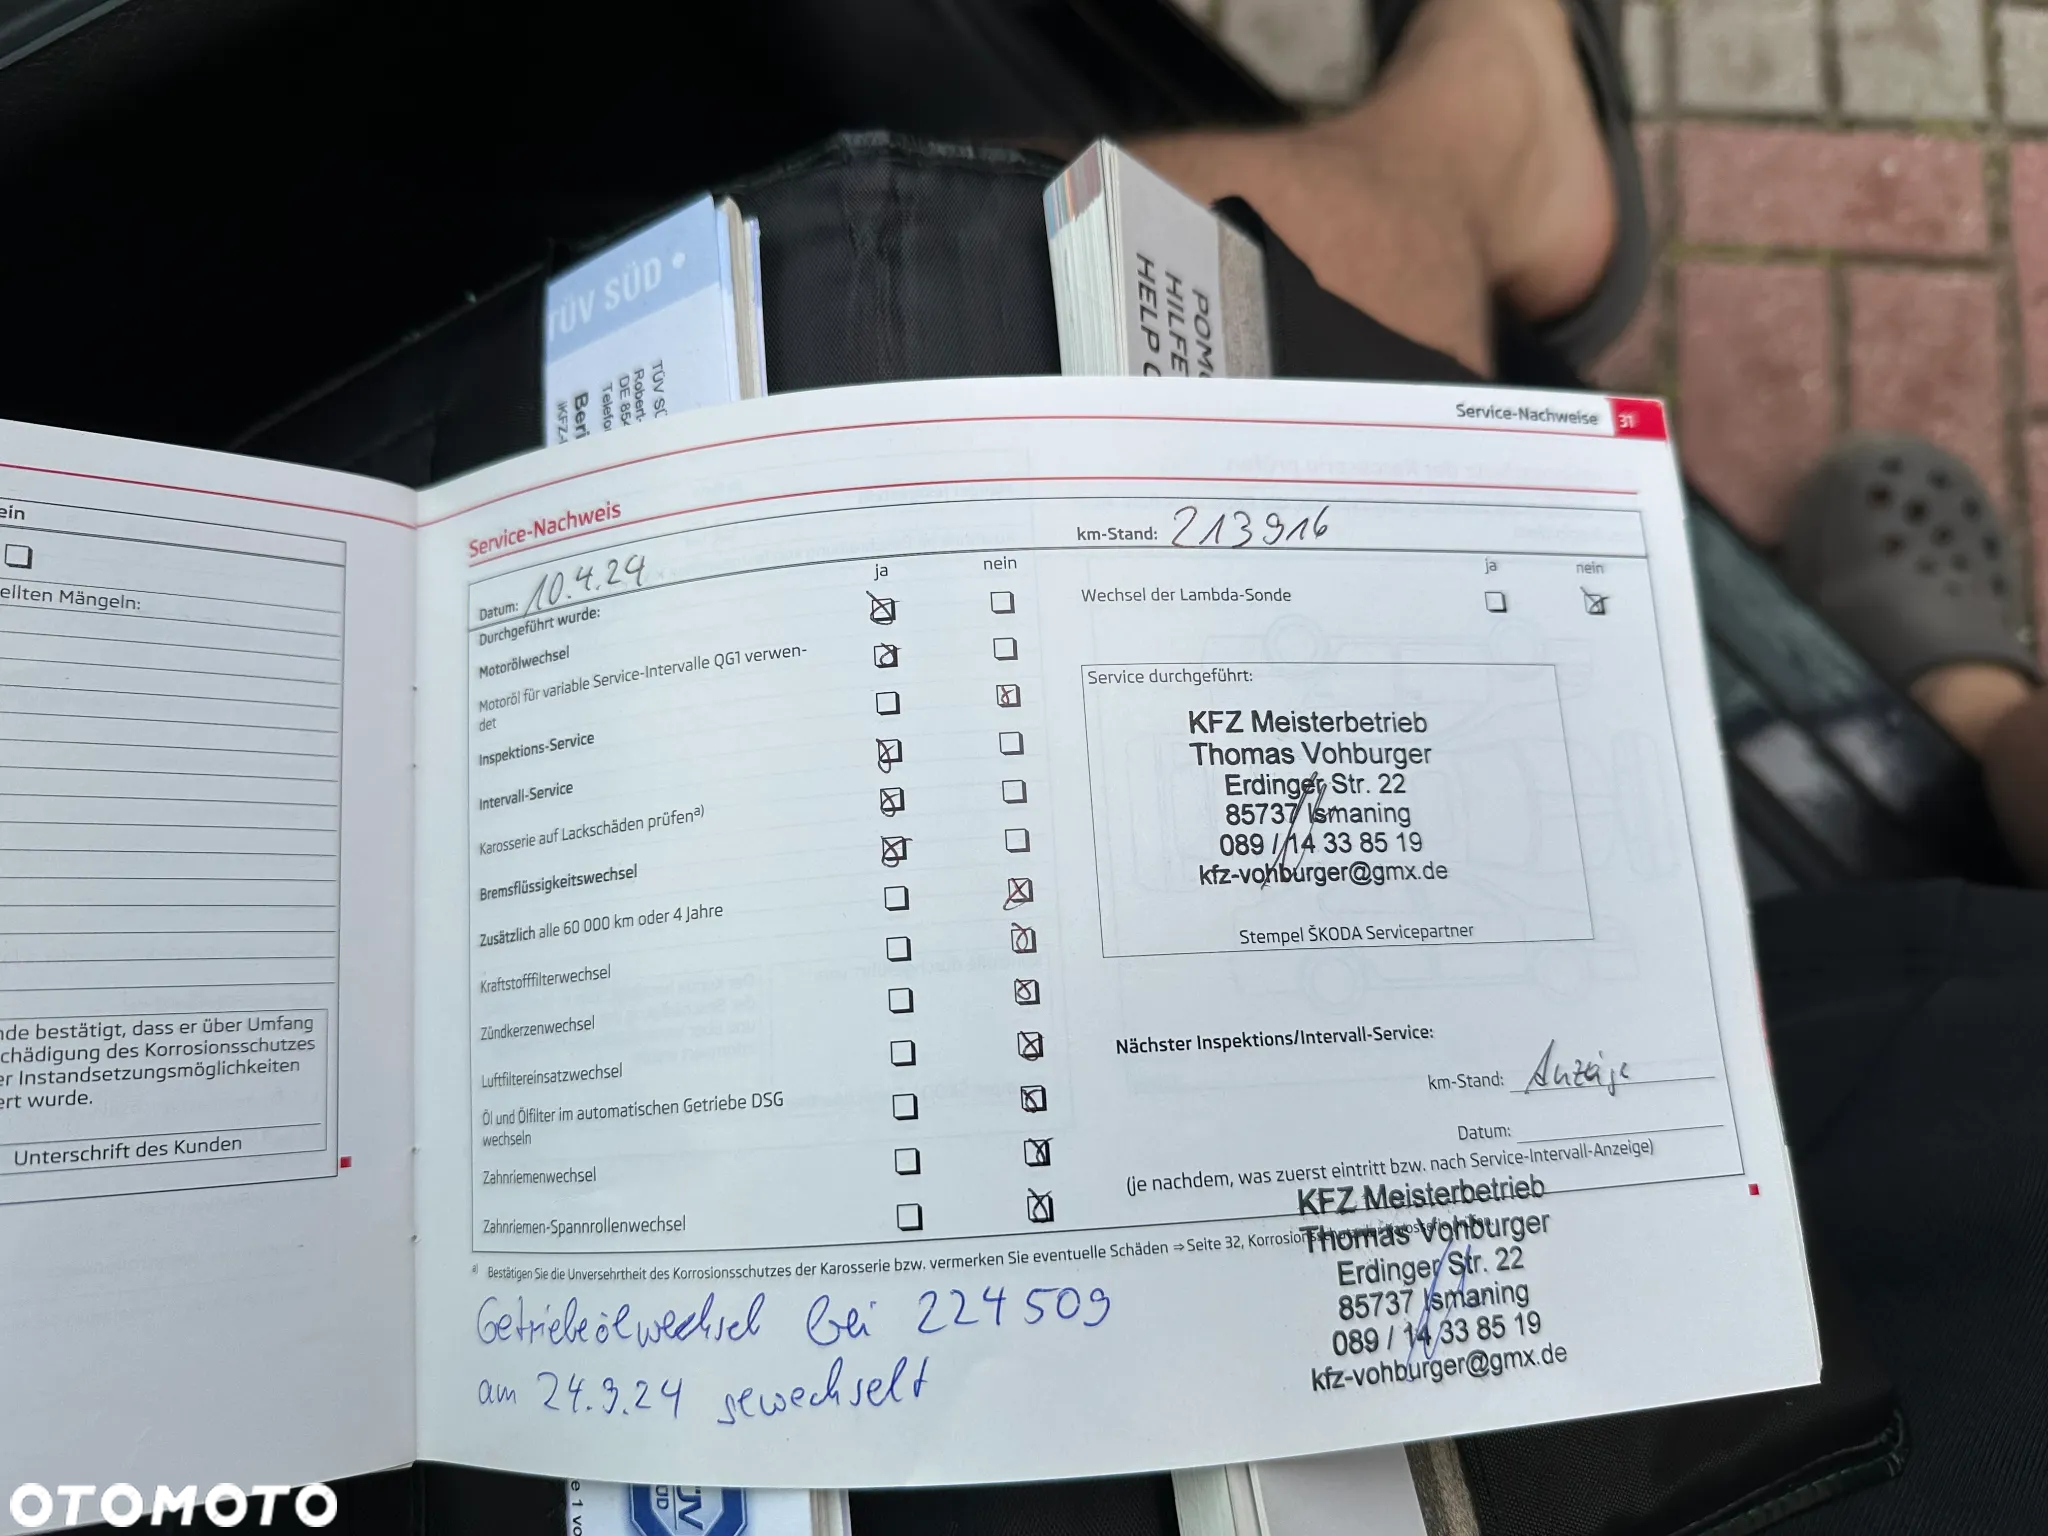 TÜV SÜD
TÜV SÜ
Robert-
DE 85
Telefo
Beri
POM
HILFE
HELP
ein
ellten Mängeln:
nde bestätigt, dass er über Umfang
chädigung des Korrosionsschutzes
er Instandsetzungsmöglichkeiten
ert wurde.
Unterschrift des Kunden
Service-Nachweise 31
Service-Nachweis
Datum: 10.4.24
km-Stand: 213916
Durchgeführt wurde:
ja nein
Motorölwechsel
Motoröl für variable Service-Intervalle QG1 verwen-
det
Inspektions-Service
Intervall-Service
Karosserie auf Lackschäden prüfen a)
Bremsflüssigkeitswechsel
Zusätzlich alle 60 000 km oder 4 Jahre
Kraftstofffilterwechsel
Zündkerzenwechsel
Luftfiltereinsatzwechsel
Öl und Ölfilter im automatischen Getriebe DSG
wechseln
Zahnriemenwechsel
Zahnriemen-Spannrollenwechsel
ja nein
Wechsel der Lambda-Sonde
Service durchgeführt:
KFZ Meisterbetrieb
Thomas Vohburger
Erdinger Str. 22
85737 Ismaning
089 / 14 33 85 19
kfz-vohburger@gmx.de
Stempel ŠKODA Servicepartner
Nächster Inspektions/Intervall-Service:
km-Stand: Anzeige
Datum:
(je nachdem, was zuerst eintritt bzw. nach Service-Intervall-Anzeige)
a) Bestätigen Sie die Unversehrtheit des Korrosionsschutzes der Karosserie bzw. vermerken Sie eventuelle Schäden ⇒ Seite 32, Korrosions
Getriebeölwechsel bei 224509
am 24.9.24 gewechselt
KFZ Meisterbetrieb
Thomas Vohburger
Erdinger Str. 22
85737 Ismaning
089 / 14 33 85 19
kfz-vohburger@gmx.de
OTOMOTO